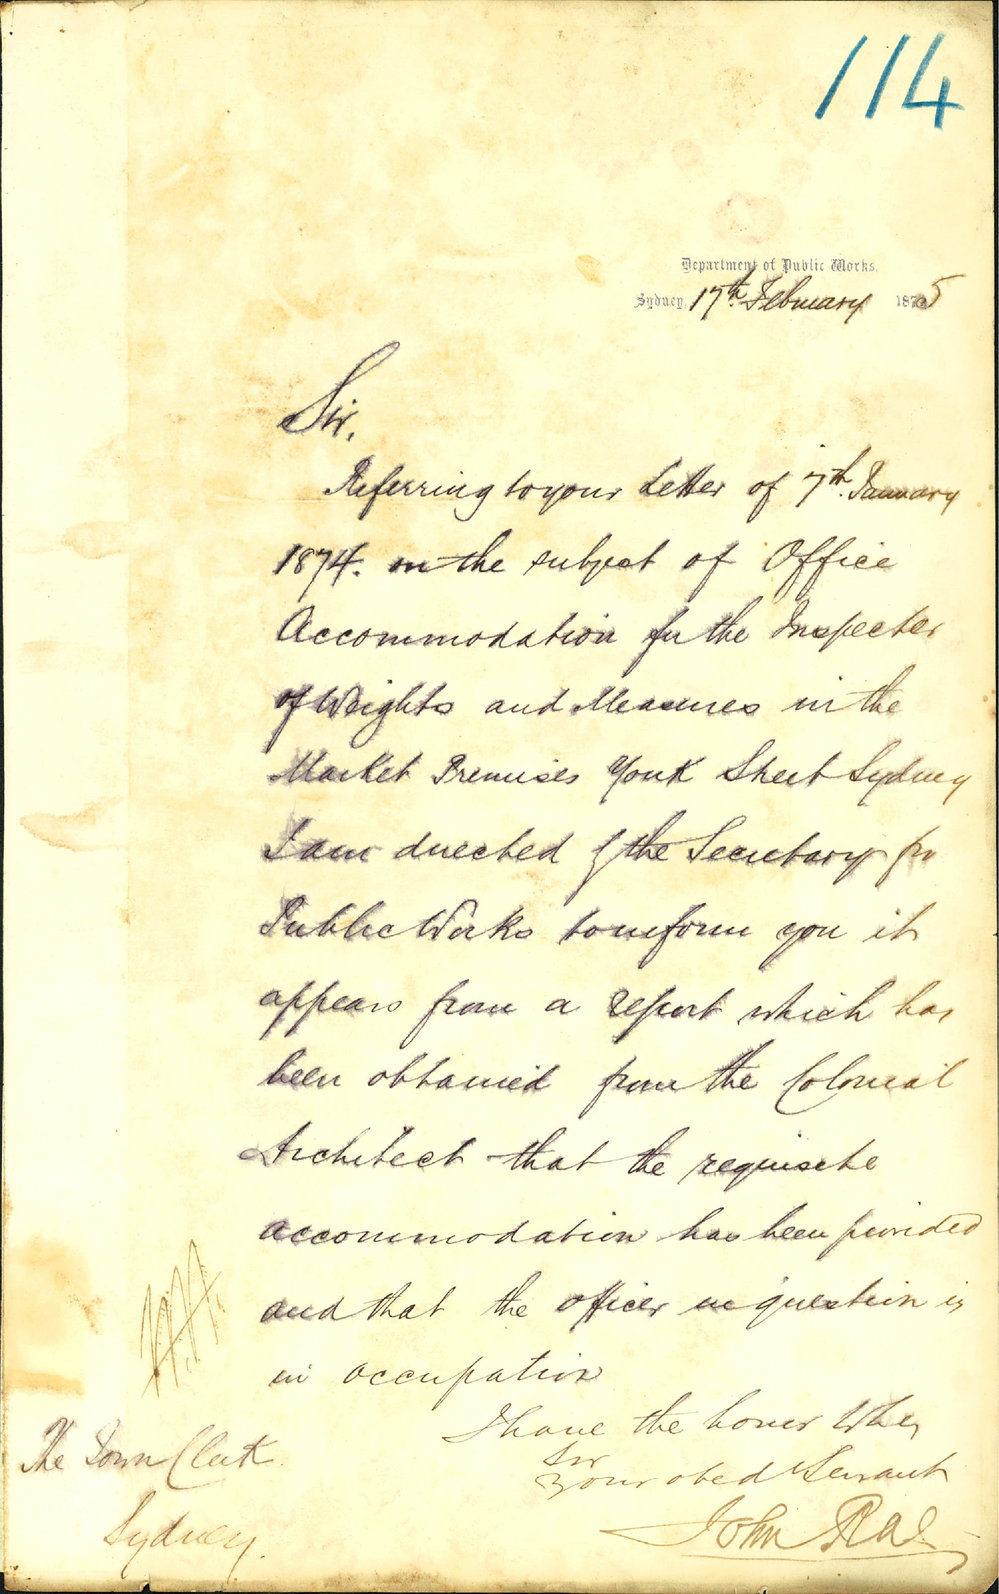 114
Department of Public Works,
Sydney, 17th February 1875
Sir,
Referring to your Letter of 7th January
1874. on the subject of Office
Accommodation for the Inspector
of Weights and Measures in the
Market Premises York Street Sydney
I am directed by the Secretary for
Public Works to inform you it
appears from a report which has
been obtained from the Colonial
Architect that the requisite
accommodation has been provided
and that the officer in question is
in occupation
I have the honor to be,
Sir
Your obed Servant
John Rae
The Town Clerk
Sydney.